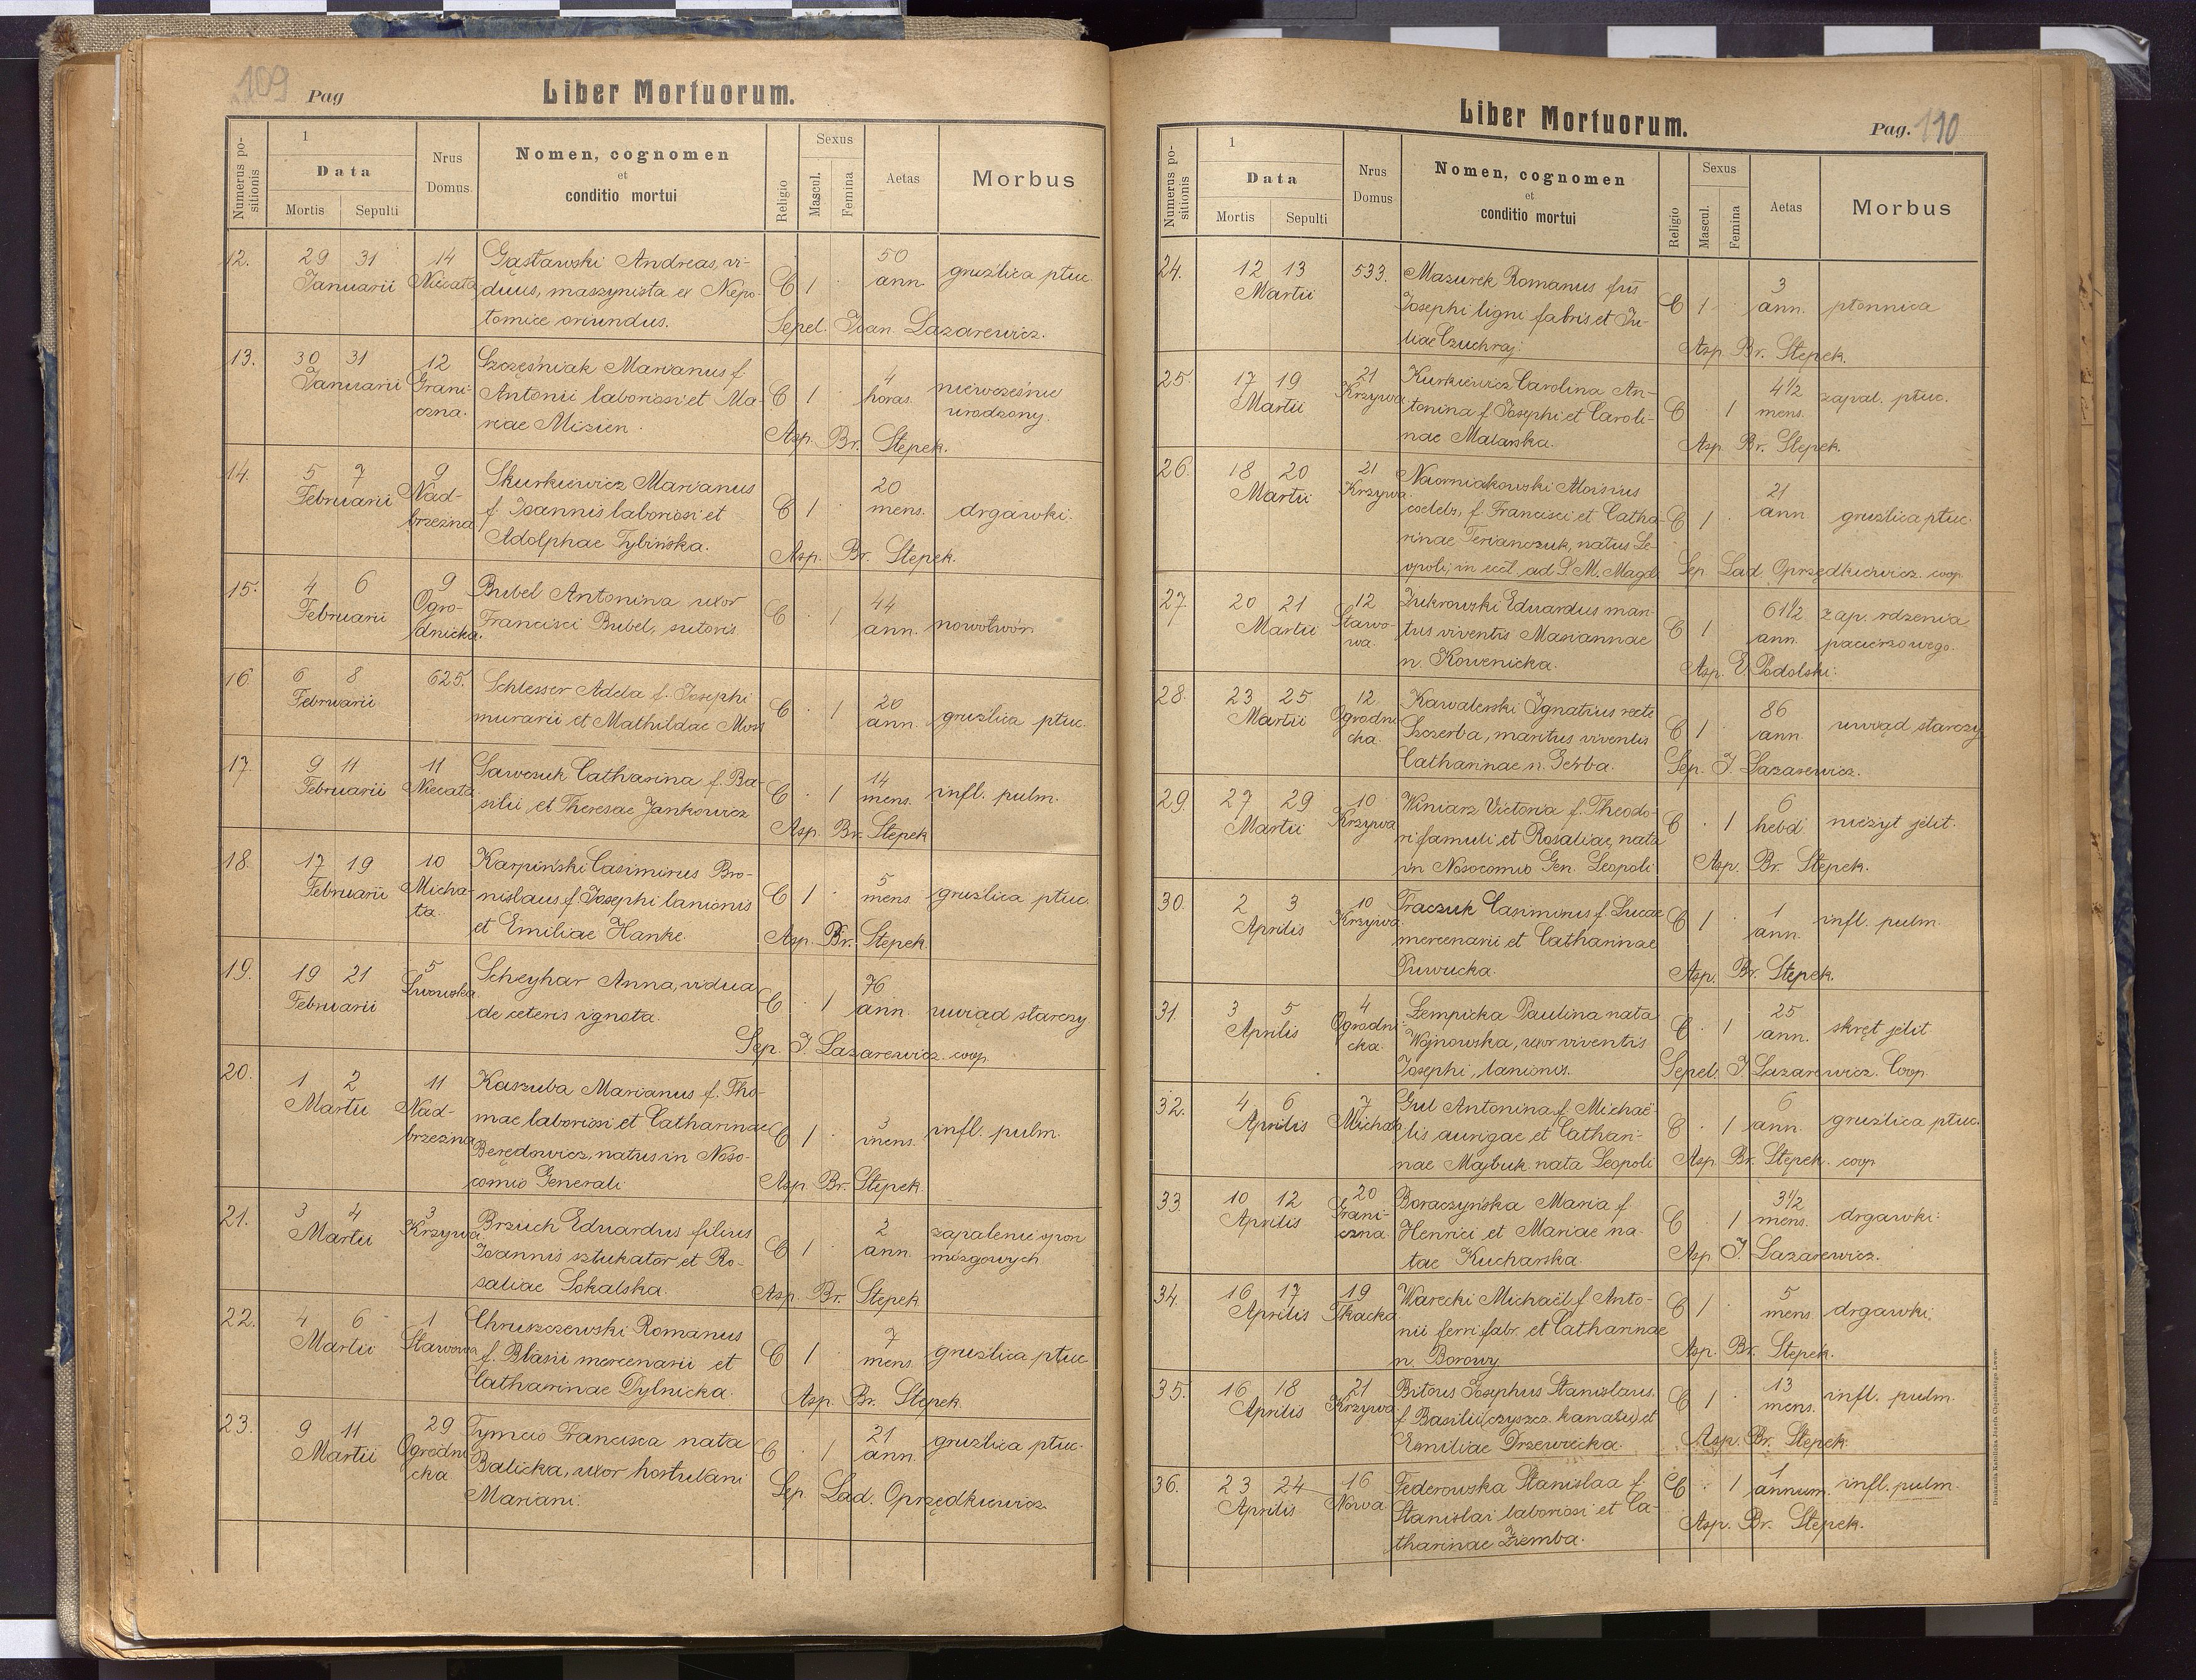 109 Pag
Liber Mortuorum.
Numerus positionis
1
Data
Mortis Sepulti
Nrus Domus.
Nomen, cognomen
et
conditio mortui
Religio
Sexus
Mascul. Femina
Aetas
Morbus
12. 29 31 14 Gąstawski Andreas, vi- 50
Januarii Niecała duus, maszynista ex Niepo- C 1 · ann. gruźlica płuc
tomice oriundus. Sepel. Joan. Lazarewicz.
13. 30 31 12 Szcześniak Marianus f. 4
Januarii Grani- Antonii laboriosi et Ma- C 1 · horas. niewcześnie
czna. riae Mizien. urodzony.
Asp. Br. Stepek.
14. 5 7 9 Skurkiewicz Marianus 20
Februarii Nad- f. Joannis laboriosi et C 1 · mens. drgawki.
brzeżna Adolphae Tybińska. Asp. Br. Stepek.
15. 4 6 9 Bubel Antonina uxor 44
Februarii Ogro- Francisci Bubel, sutoris C · 1 ann. nowotwór
dnicka.
16. 6 8 625. Schlesser Adela f. Josephi 20
Februarii murarii et Mathildae Moss C · 1 ann. gruźlica płuc.
17. 9 11 11 Sawczuk Catharina f. Ba- 14
Februarii Niecała silii et Theresae Jankowicz C · 1 mens. infl. pulm.
Asp. Br. Stepek
18. 17 19 10 Karpiński Casimirus Bro- 5
Februarii Micha- nislaus f. Josephi lanionis C 1 · mens. gruźlica płuc.
ła. et Emiliae Hanke. Asp. Br. Stepek.
19. 19 21 5 Scheyhar Anna, vidua 76
Februarii Lwowska de ceteris ignota. C · 1 ann. uwiąd starczy
Sep. J. Lazarewicz. coop.
20. 1 2 11 Kaszuba Marianus f. Tho-
Martii Nad- mae laboriosi et Catharinae C 1 · 3 mens. infl. pulm.
brzeżna Berędowicz, natus in Noso-
comio Generali Asp. Br. Stepek.
21. 3 4 3 Brzuch Eduardus filius 2 zapalenie opon
Martii Krzywa Joannis sztukator et Ro- C 1 · ann. mózgowych
saliae Sokalska. Asp. Br. Stepek
22. 4 6 1 Chruszczewski Romanus 7
Martii Stawowa f. Blasii mercenarii et C 1 · mens. gruźlica płuc
Catharinae Dylnicka. Asp. Br. Stepek.
23. 9 11 29 Tymcio Francisca nata 21
Martii Ogrodni Balicka, uxor hortulani C · 1 ann. gruźlica płuc.
cka Mariani. Sep. Lad. Oprzędkiewicz.
Liber Mortuorum.
Pag. 110
Numerus positionis
1
Data
Mortis Sepulti
Nrus Domus
Nomen, cognomen
et
conditio mortui
Religio
Sexus
Mascul. Femina
Aetas
Morbus
24. 12 13 533. Mazurek Romanus fius 3
Martii Josephi ligni fabris et Ju- C 1 · ann. płonnica
liae Czuchraj. Asp. Br. Stepek.
25. 17 19 21 Kurkiewicz Carolina An- 4½
Martii Krzywa tonina f. Josephi et Caroli- C · 1 mens. zapal. płuc.
nae Malarska. Asp. Br. Stepek.
26. 18 20 21 Naorniakowski Aloisius 21
Martii Krzywa. coelebs, f. Francisci et Catha- C 1 · ann. gruźlica płuc.
rinae Terianczuk, natus Le-
opoli, in eccl. ad S. M. Magd. Sep Lad. Oprzędkiewicz. coop.
27. 20 21 12 Żukrowski Eduardus mari- 61½ zap. rdzenia
Martii Stawo- tus viventis Mariannae C 1 · ann. pacierzowego.
wa. n. Kowenicka. Asp. E. Podolski.
28. 23 25 12 Kawalerski Ignatius recte 86
Martii Ogrodni Szczerba, maritus viventis C 1 · ann. uwiąd starczy
cka. Catharinae n. Gerba. Sep. J. Lazarewicz.
29. 27 29 10 Winiarz Victoria f. Theodo- 6
Martii Krzywa ri famuli et Rosaliae, nata C · 1 hebd. nieżyt jelit.
in Nosocomio Gen. Leopoli Asp. Br. Stepek.
30. 2 3 10 Fraczuk Casimirus f. Lucae 1
Aprilis Krzywa. mercenarii et Catharinae C 1 · ann. infl. pulm.
Puwucka. Asp. Br. Stepek.
31. 3 5 4 Łempicka Paulina nata 25
Aprilis Ogrodni- Wojnowska, uxor viventis C · 1 ann. skręt jelit
cka. Josephi, lanionis. Sepel. J. Lazarewicz. Coop.
32. 4 6 7 Gul Antonina f. Michaë- 6
Aprilis Michała lis aurigae et Cathari- C · 1 ann. gruźlica płuc.
nae Majbuk nata Leopoli Asp. Br. Stepek. coop
33. 10 12 20 Boraczyńska Maria f 3½
Aprilis Grani- Henrici et Mariae na- C · 1 mens. drgawki.
czna. tae Kucharska. Asp J. Lazarewicz.
34. 16 17 19 Warecki Michaël f. Anto- 5
Aprilis Tkacka nii ferri fabr. et Catharinae C 1 · mens. drgawki.
n. Borowy Asp. Br. Stepek.
35. 16 18 21 Bitous Josephus Stanislaus 13
Aprilis Krzywa. f. Basilii (czyszcz. kanałów) et C 1 · mens. infl. pulm.
Emiliae Drzewicka. Asp. Br. Stepek.
36. 23 24 16 Federowska Stanislaa f. 1
Aprilis Nowa Stanislai laboriosi et Ca- C · 1 annum. infl. pulm.
tharinae Ziemba. Asp. Br. Stepek.
Drukarnia Katolicka Józefa Chęcińskiego Lwów.